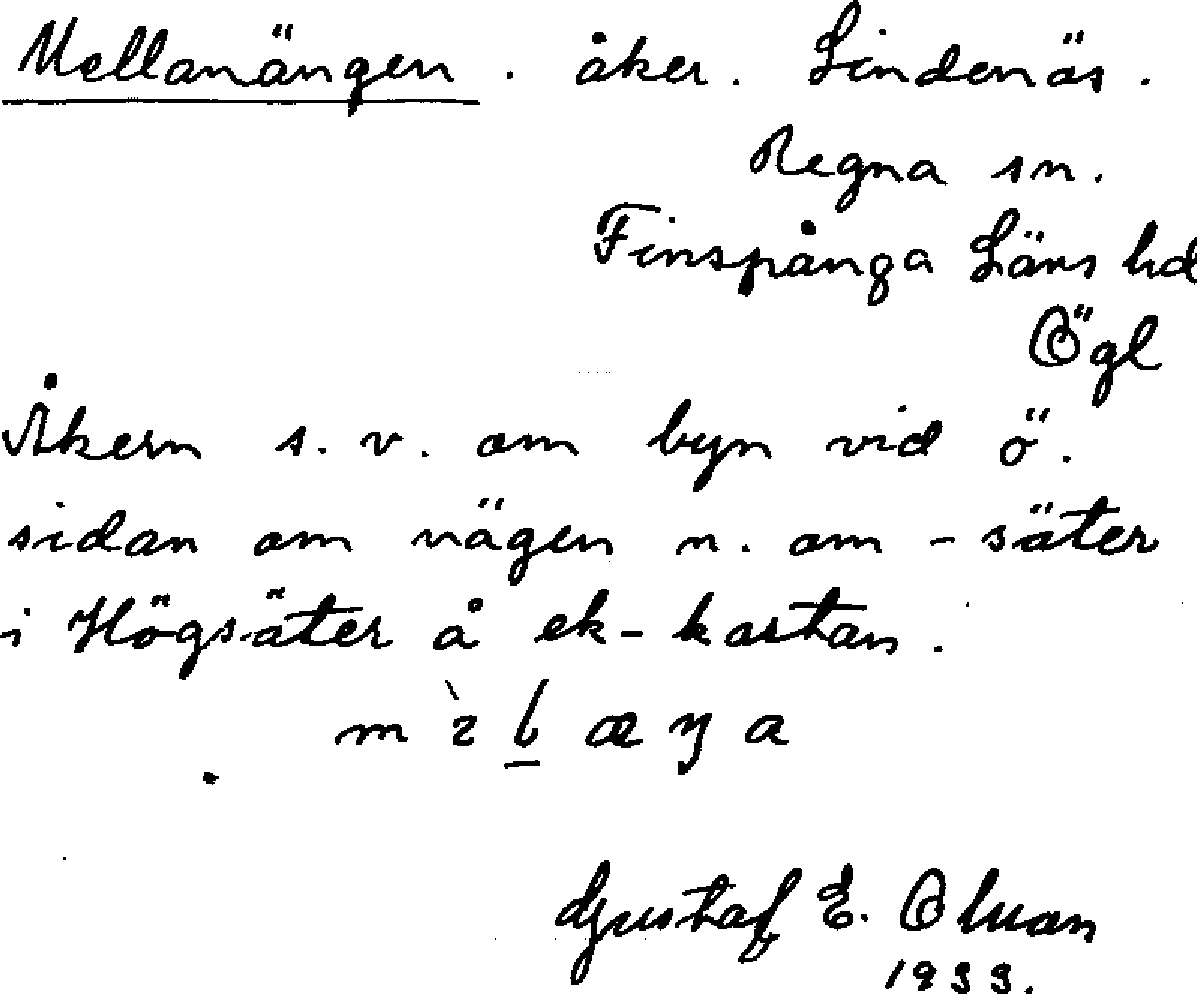 Mellanängen. åker. Lindenäs.
Regna sn.
Finspånga Läns hd
Ögl
Åkern s.v. om byn vid ö.
sidan om vägen n. om -säter
i Högsäter å ek-kartan.
Gustaf E. Olsson
1933.